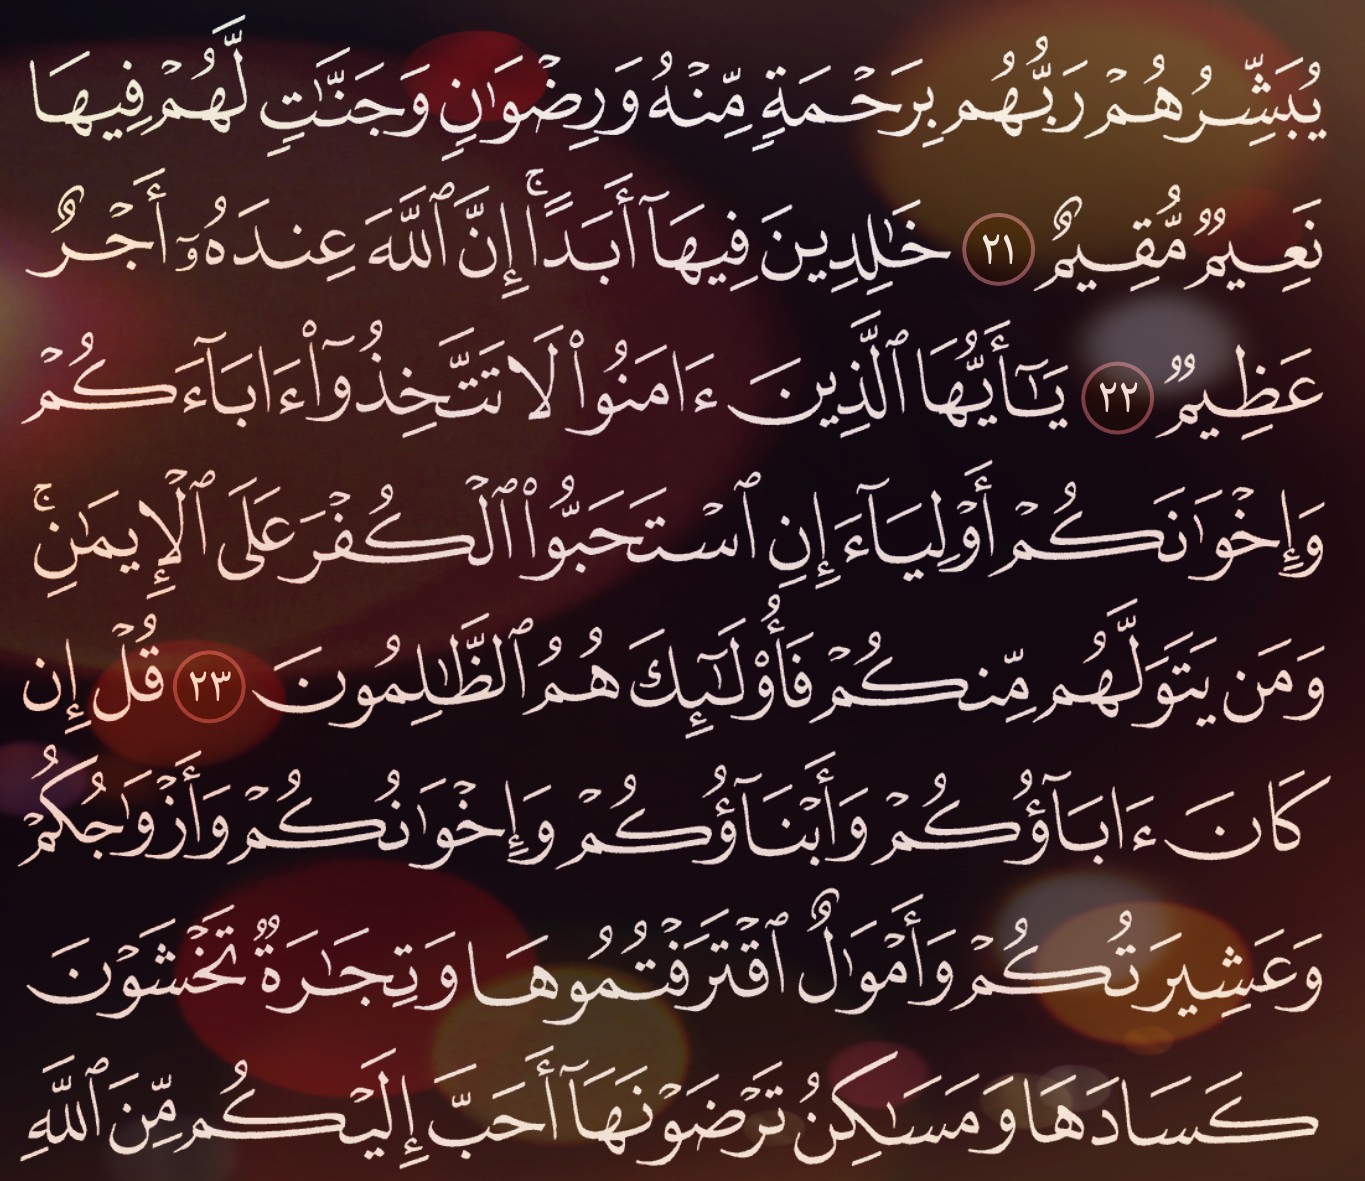 يُبَشِّرُهُمْ رَبُّهُم بِرَحْمَةٍ مِّنْهُ وَرِضْوَٰنٍ وَجَنَّٰتٍ لَّهُمْ فِيهَا
نَعِيمٌ مُّقِيمٌ ٢١ خَٰلِدِينَ فِيهَآ أَبَدًا ۚ إِنَّ ٱللَّهَ عِندَهُۥٓ أَجْرٌ
عَظِيمٌ ٢٢ يَٰٓأَيُّهَا ٱلَّذِينَ ءَامَنُوا۟ لَا تَتَّخِذُوٓا۟ ءَابَآءَكُمْ
وَإِخْوَٰنَكُمْ أَوْلِيَآءَ إِنِ ٱسْتَحَبُّوا۟ ٱلْكُفْرَ عَلَى ٱلْإِيمَٰنِ ۚ
وَمَن يَتَوَلَّهُم مِّنكُمْ فَأُو۟لَٰٓئِكَ هُمُ ٱلظَّٰلِمُونَ ٢٣ قُلْ إِن
كَانَ ءَابَآؤُكُمْ وَأَبْنَآؤُكُمْ وَإِخْوَٰنُكُمْ وَأَزْوَٰجُكُمْ
وَعَشِيرَتُكُمْ وَأَمْوَٰلٌ ٱقْتَرَفْتُمُوهَا وَتِجَٰرَةٌ تَخْشَوْنَ
كَسَادَهَا وَمَسَٰكِنُ تَرْضَوْنَهَآ أَحَبَّ إِلَيْكُم مِّنَ ٱللَّهِ